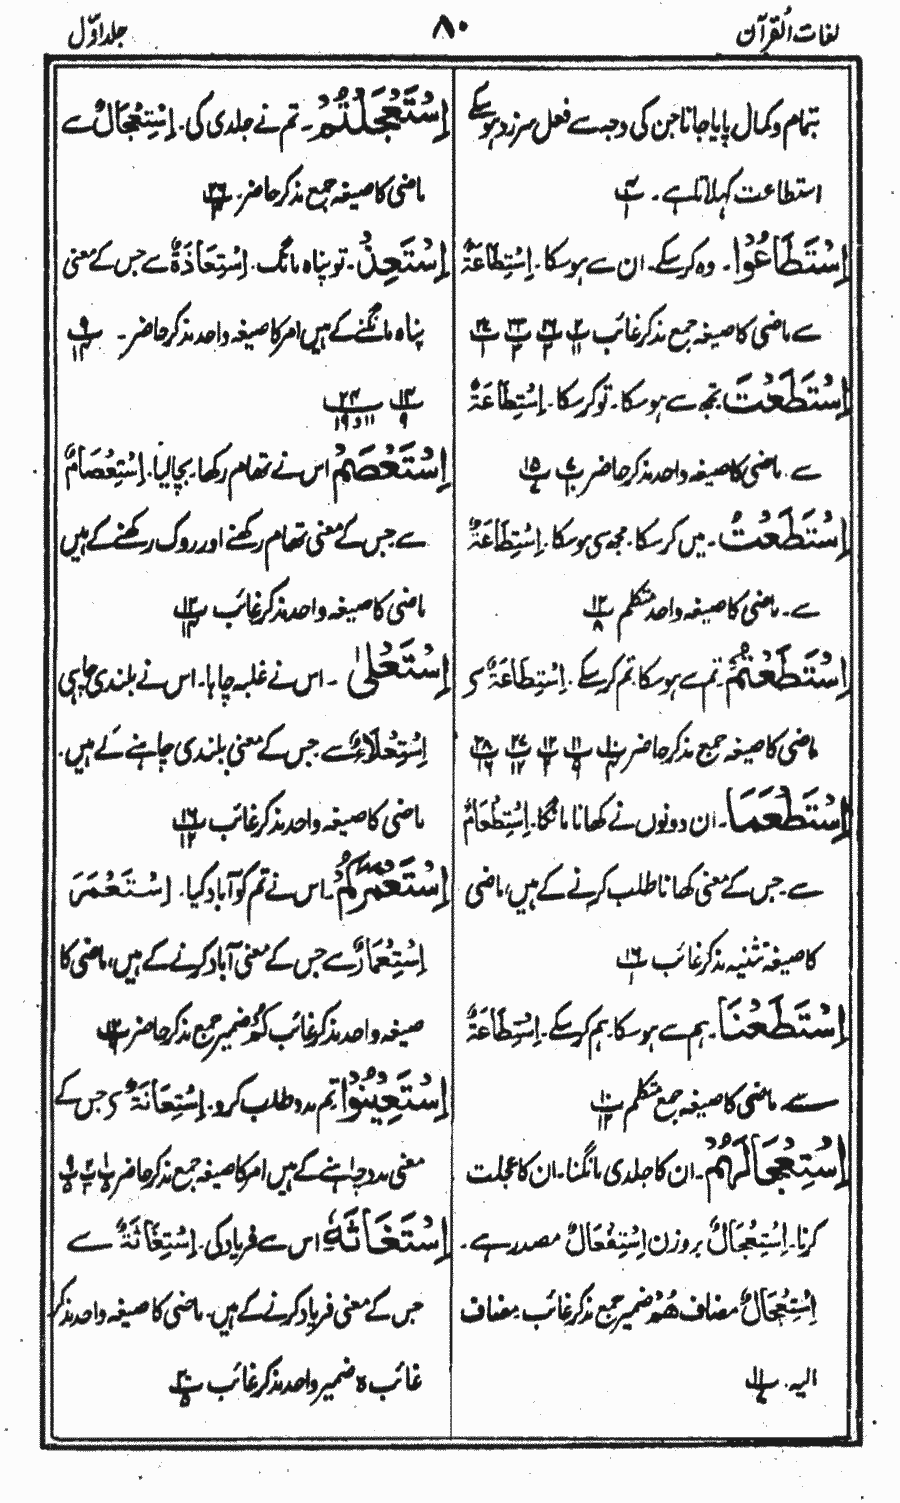 لغات القرآن
۸۰
جلد اوّل
بتمام و کمال پایا جاتا جن کی وجہ سے فعل سرزد ہوسکے
استطاعت کہلاتا ہے۔
اِسْتَطَاعُوْا۔ وہ کرسکے۔ ان سے ہوسکا۔ اِسْتِطَاعَۃٌ
سے ماضی کا صیغہ جمع مذکر غائب
اِسْتَطَعْتَ تجھ سے ہوسکا۔ تو کرسکا۔ اِسْتِطَاعَۃٌ
سے۔ ماضی کا صیغہ واحد مذکر حاضر
اِسْتَطَعْتُ۔ میں کرسکا۔ مجھ سے ہوسکا۔ اِسْتِطَاعَۃٌ
سے۔ ماضی کا صیغہ واحد متکلم
اِسْتَطَعْتُمْ۔ تم سے ہوسکا۔ تم کرسکے۔ اِسْتِطَاعَۃٌ سے
ماضی کا صیغہ جمع مذکر حاضر
اِسْتَطْعَمَا۔ ان دونوں نے کھانا مانگا۔ اِسْتِطْعَامٌ
سے۔ جس کے معنی کھانا طلب کرنے کے ہیں، ماضی
کا صیغہ تثنیہ مذکر غائب
اِسْتَطَعْنَا۔ ہم سے ہوسکا۔ ہم کرسکے۔ اِسْتِطَاعَۃٌ
سے۔ ماضی کا صیغہ جمع متکلم
اِسْتِعْجَالَہُمْ۔ ان کا جلدی مانگنا۔ ان کا عجلت
کرنا۔ اِسْتِعْجَالٌ بروزن اِسْتِفْعَالٌ مصدر ہے۔
اِسْتِعْجَالٌ مضاف ھُمْ ضمیر جمع مذکر غائب مضاف
الیہ۔
اِسْتَعْجَلْتُمْ۔ تم نے جلدی کی۔ اِسْتِعْجَالٌ سے
ماضی کا صیغہ جمع مذکر حاضر۔
اِسْتَعِذْ۔ تو پناہ مانگ۔ اِسْتِعَاذَۃٌ سے جس کے معنی
پناہ مانگنے کے ہیں امر کا صیغہ واحد مذکر حاضر۔
اِسْتَعْصَمَ اس نے تھام رکھا۔ بچا لیا۔ اِسْتِعْصَامٌ
سے۔ جس کے معنی تھام رکھنے اور روک رکھنے کے ہیں
ماضی کا صیغہ واحد مذکر غائب
اِسْتَعْلٰی۔ اس نے غلبہ چاہا۔ اس نے بلندی چاہی
اِسْتِعْلَاءٌ سے جس کے معنی بلندی چاہنے کے ہیں۔
ماضی کا صیغہ واحد مذکر غائب
اِسْتَعْمَرَکُمْ۔ اس نے تم کو آباد کیا۔ اِسْتَعْمَرَ
اِسْتِعْمَارٌ سے جس کے معنی آباد کرنے کے ہیں، ماضی کا
صیغہ واحد مذکر غائب کُمْ ضمیر جمع مذکر حاضر
اِسْتَعِیْنُوْا تم مدد طلب کرو۔ اِسْتِعَانَۃٌ سے جس کے
معنی مدد چاہنے کے ہیں امر کا صیغہ جمع مذکر حاضر
اِسْتَغَاثَہٗ اس سے فریاد کی۔ اِسْتِغَاثَۃٌ سے
جس کے معنی فریاد کرنے کے ہیں۔ ماضی کا صیغہ واحد مذکر
غائب ہ ضمیر واحد مذکر غائب